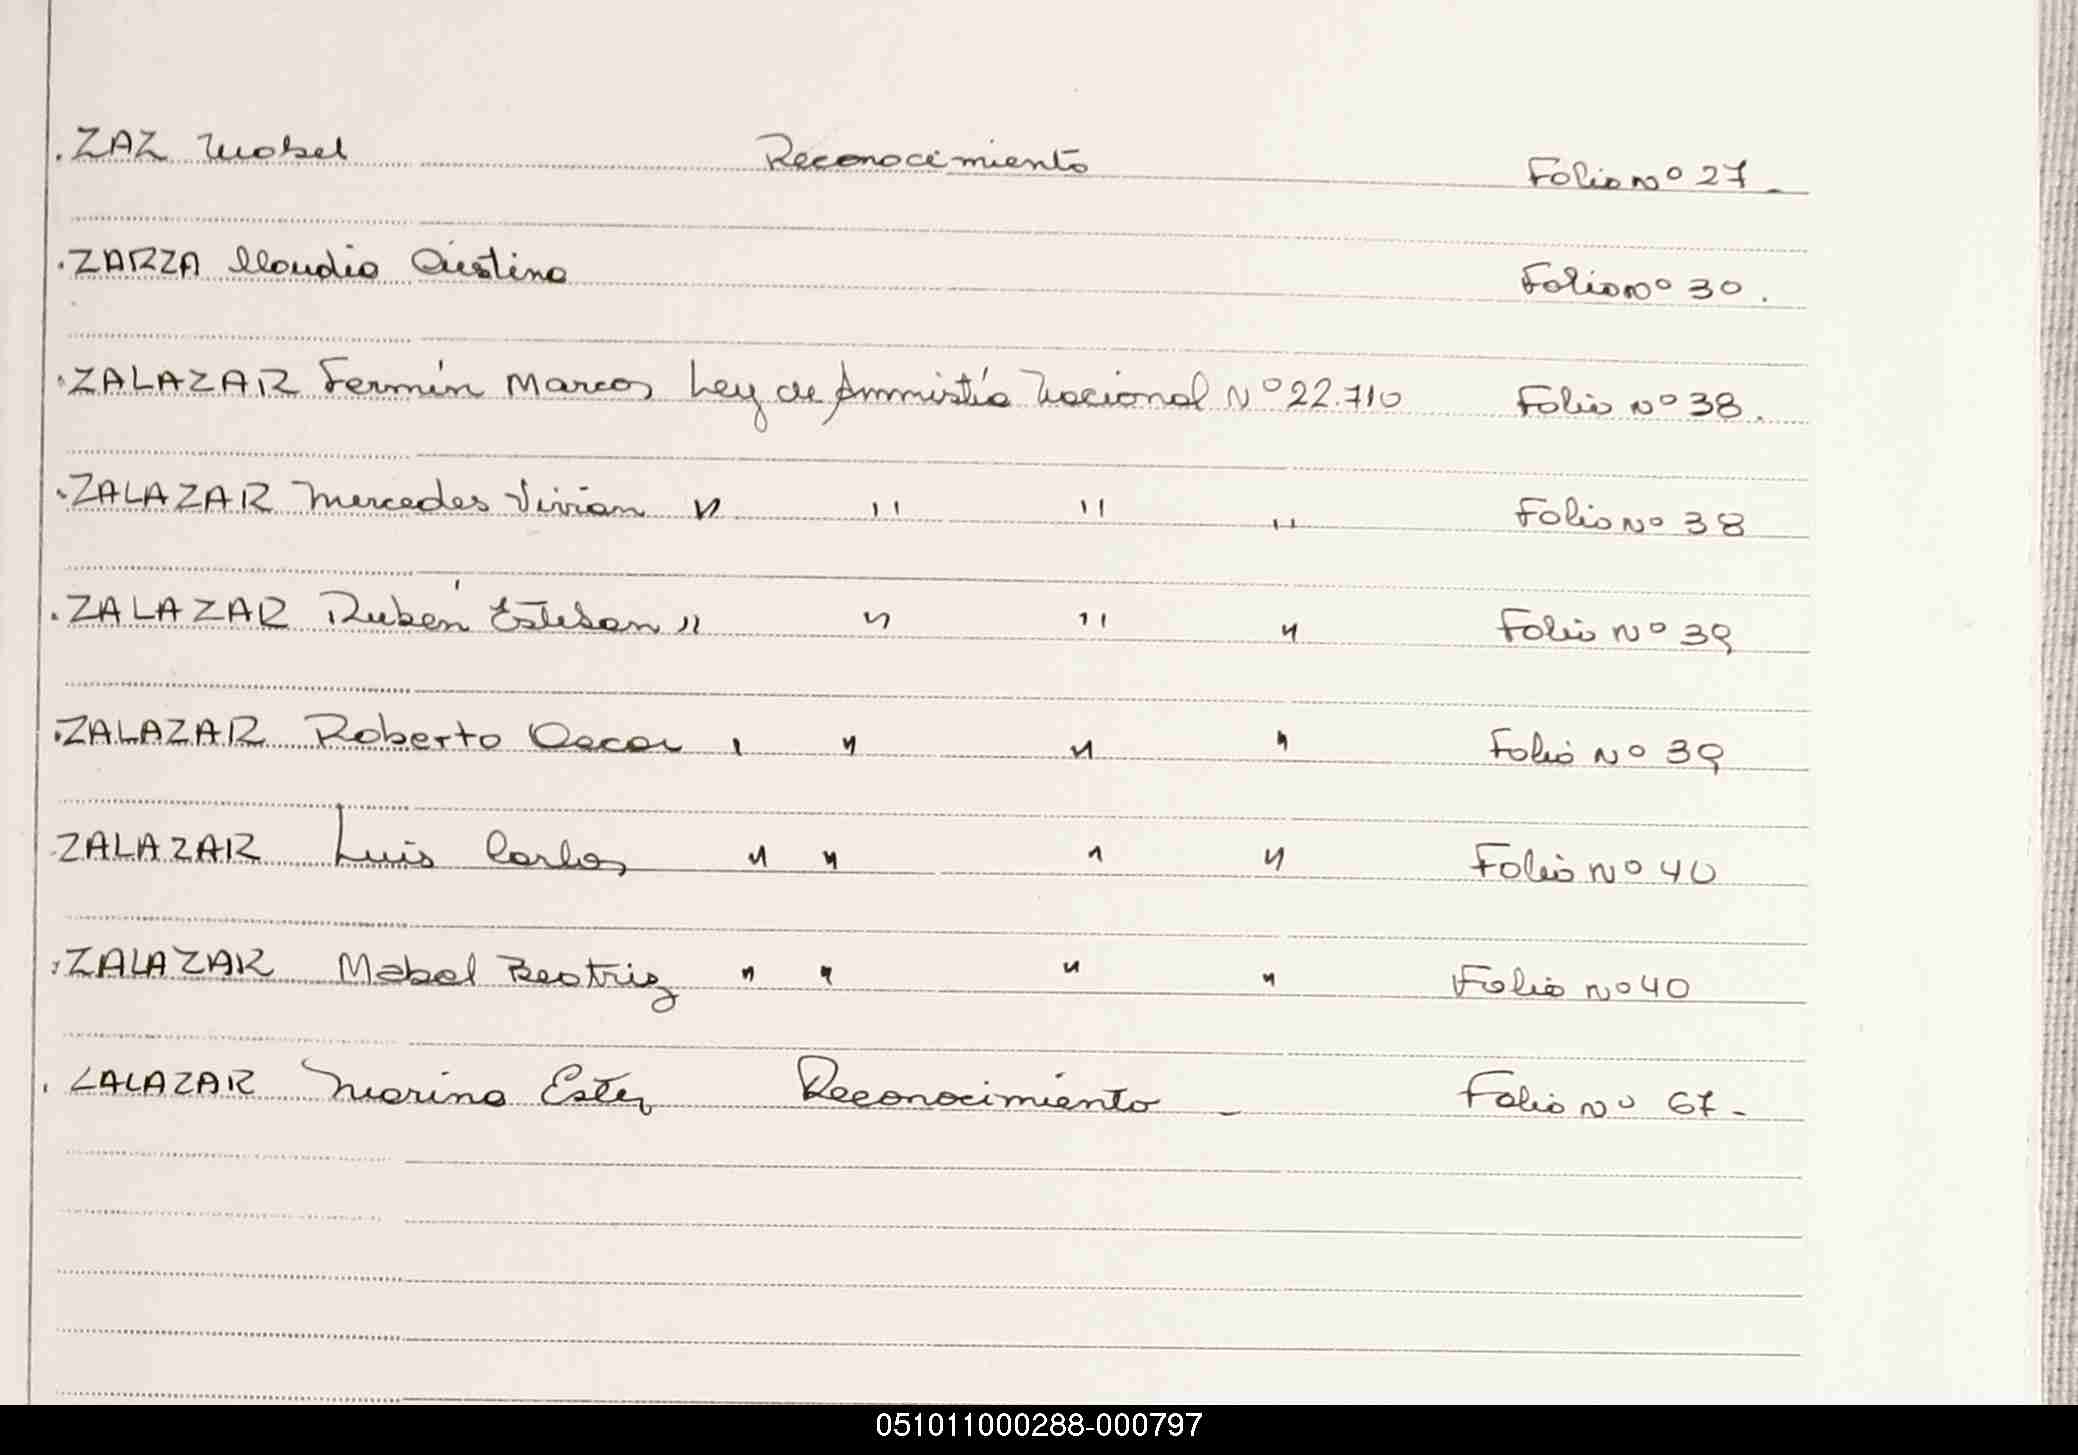 . ZAZ Mabel Reconocimiento Folio Nº 27 -
. ZARZA Claudia Cristina Folio Nº 30 .
. ZALAZAR Fermín Marcos Ley de Ammistía Nacional Nº 22.710 Folio Nº 38 .
. ZALAZAR Mercedes Vivian " " " " Folio Nº 38
. ZALAZAR Rubén Esteban " " " " Folio Nº 39
. ZALAZAR Roberto Oscar " " " " Folio Nº 39
ZALAZAR Luis Carlos " " " " Folio Nº 40
. ZALAZAR Mabel Beatriz " " " " Folio Nº 40
. ZALAZAR Marina Ester Reconocimiento - Folio Nº 67 -
051011000288-000797